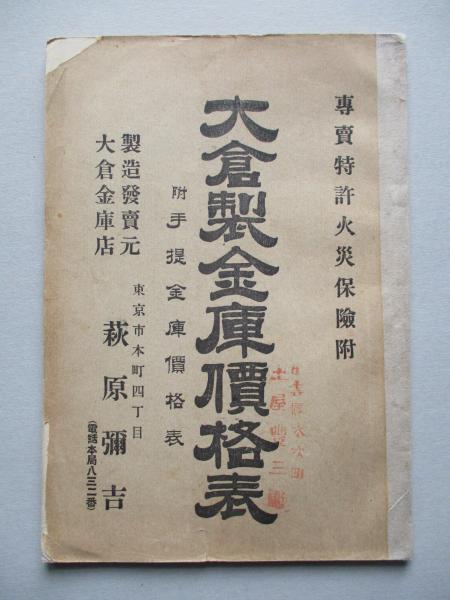 專賣特許火災保險附
大倉製金庫價格表
附手提金庫價格表
東京市本町四丁目
製造發賣元
大倉金庫店
萩原彌吉
(電話本局八三二番)
土屋豊三